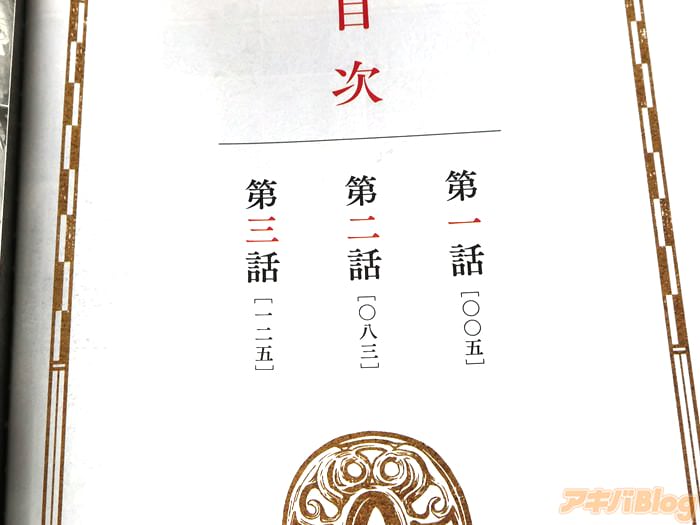 目次
第一話［〇〇五］
第二話［〇八三］
第三話［一二五］
アキバBlog